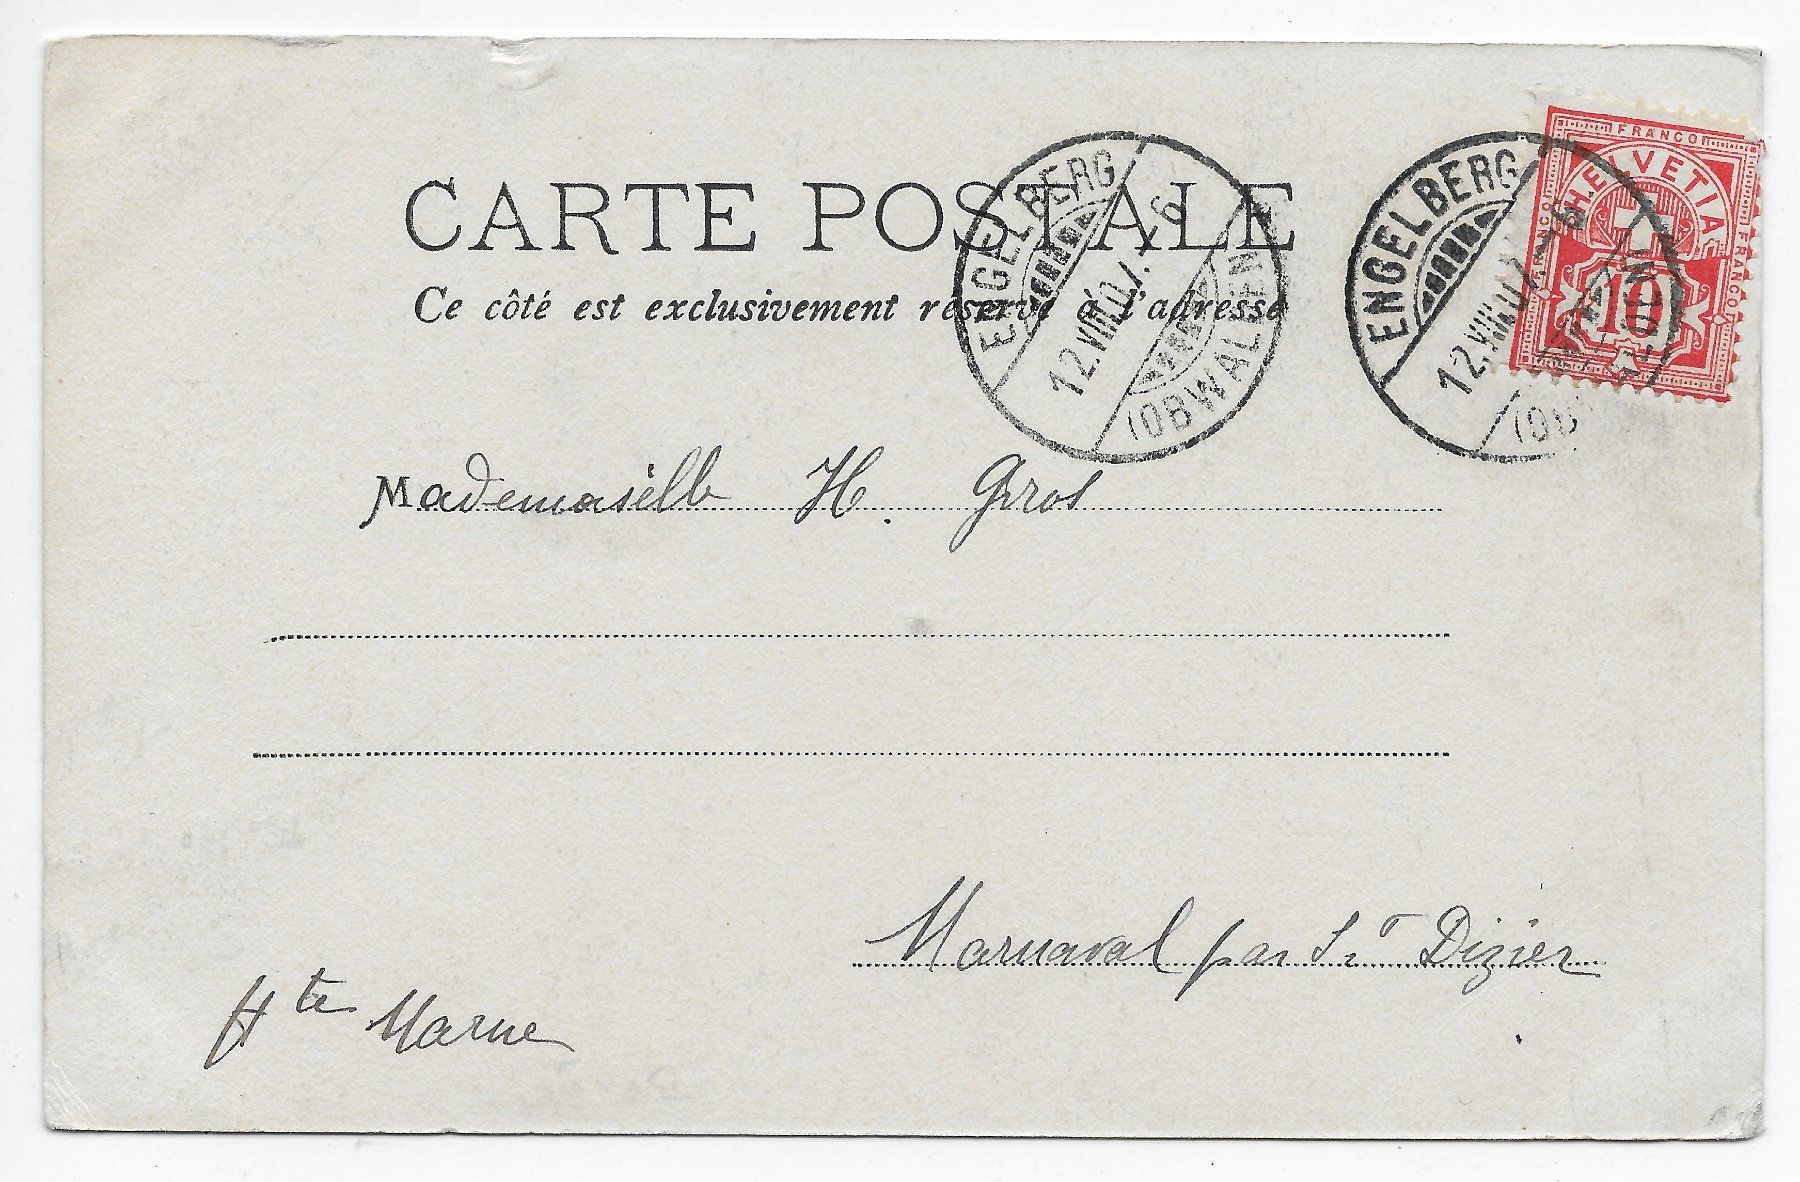 CARTE POSTALE
Ce côté est exclusivement réservé à l'adresse
ENGELBERG
12.VIII.07.-6
(OBWALDEN)
ENGELBERG
12.VIII.07.-6
FRANCO
HELVETIA
FRANCO
FRANCO
10
Mademoiselle H. Gros
Marnaval par St Dizier
Hte Marne